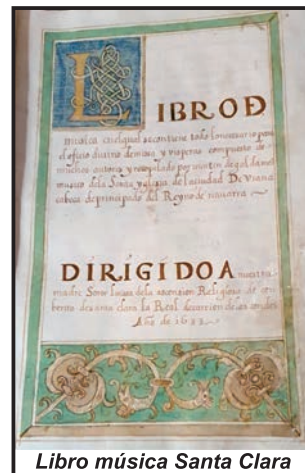 LIBRO Ð
musica enelqual secontiene todo lonecesario para
el oficio divino demisa y visperas compuesto de
muchos autores y recopilado por
musico dela Santa yglesia de la ciudad De Viana
cabeça de principado del Reyno de navarra
DIRIGIDO A nuestra
madre Soror Luisa dela ascension Religiosa de con
bento de santa clara la Real de carrion de los condes
Año de 1633
Libro música Santa Clara